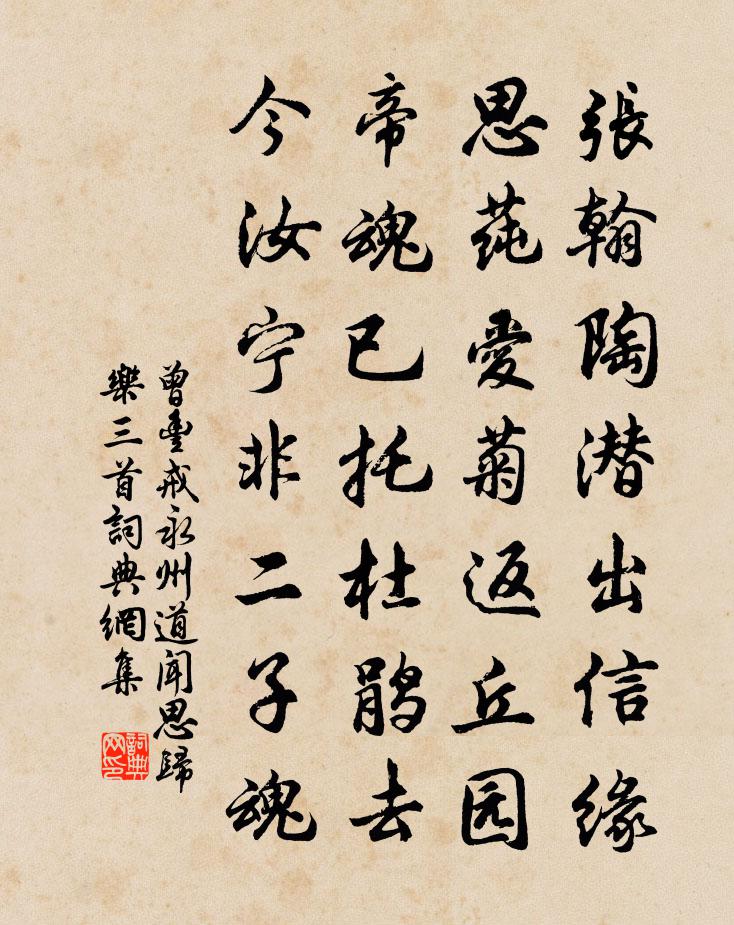 張翰陶潜出信缘
思莼愛菊返丘园
帝魂已托杜鹃去
今汝宁非二子魂
曾豐戒永州道聞思歸
樂三首詞典網集
詞典
网印